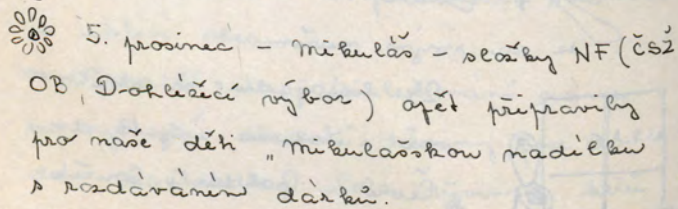 5. prosinec - Mikuláš - složky NF (ČSŽ
OB, Dohlížecí výbor) opět připravily
pro naše děti „Mikulášskou nadílku
s rozdáváním dárků.